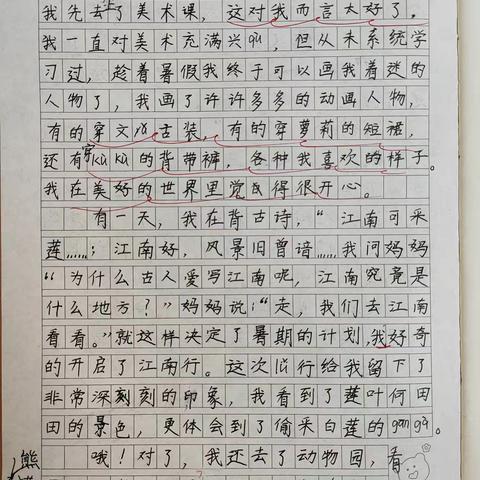 我先去上了美术课，这对我而言太好了。
我一直对美术充满兴qù，但从未系统学
习过，趁着暑假我终于可以画我着迷的
人物了，我画了许许多多的动画人物，
有的穿文 古装，有的穿萝莉的短裙，
还有穿kù kù的背带裤，各种我喜欢的样子。
我在美好的世界里觉 得很开心。
有一天，我在背古诗，“江南可采
莲……；江南好，风景旧曾谙……我问妈妈
“为什么古人爱写江南呢，江南究竟是
什么地方？”妈妈说：“走，我们去江南
看看。”就这样决定了暑期的计划，我好奇
的开启了江南行。这次 行给我留下了
非常深刻刻的印象，我看到了莲叶何田
田的景色，更体会到了偷采白莲的gān gà。
哦！对了，我还去了动物园，看
熊